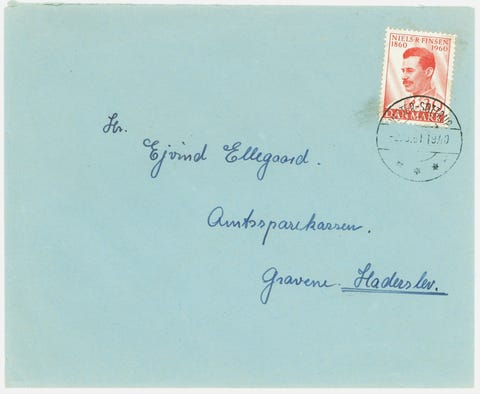 NIELS·R·FINSEN
1860 1960
DANMARK
Hr.
Ejvind Ellegaard.
Amtssparekassen.
Gravene. Haderslev.